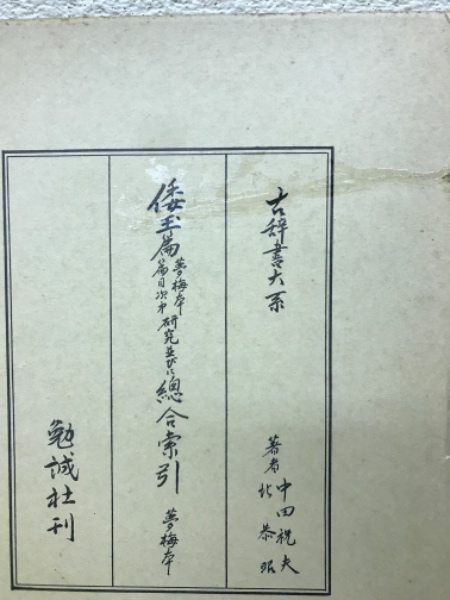 古辞書大系
著者 中田祝夫
北恭昭
倭玉篇 夢梅本
篇目次第 研究並びに總合索引 夢梅本
勉誠社刊